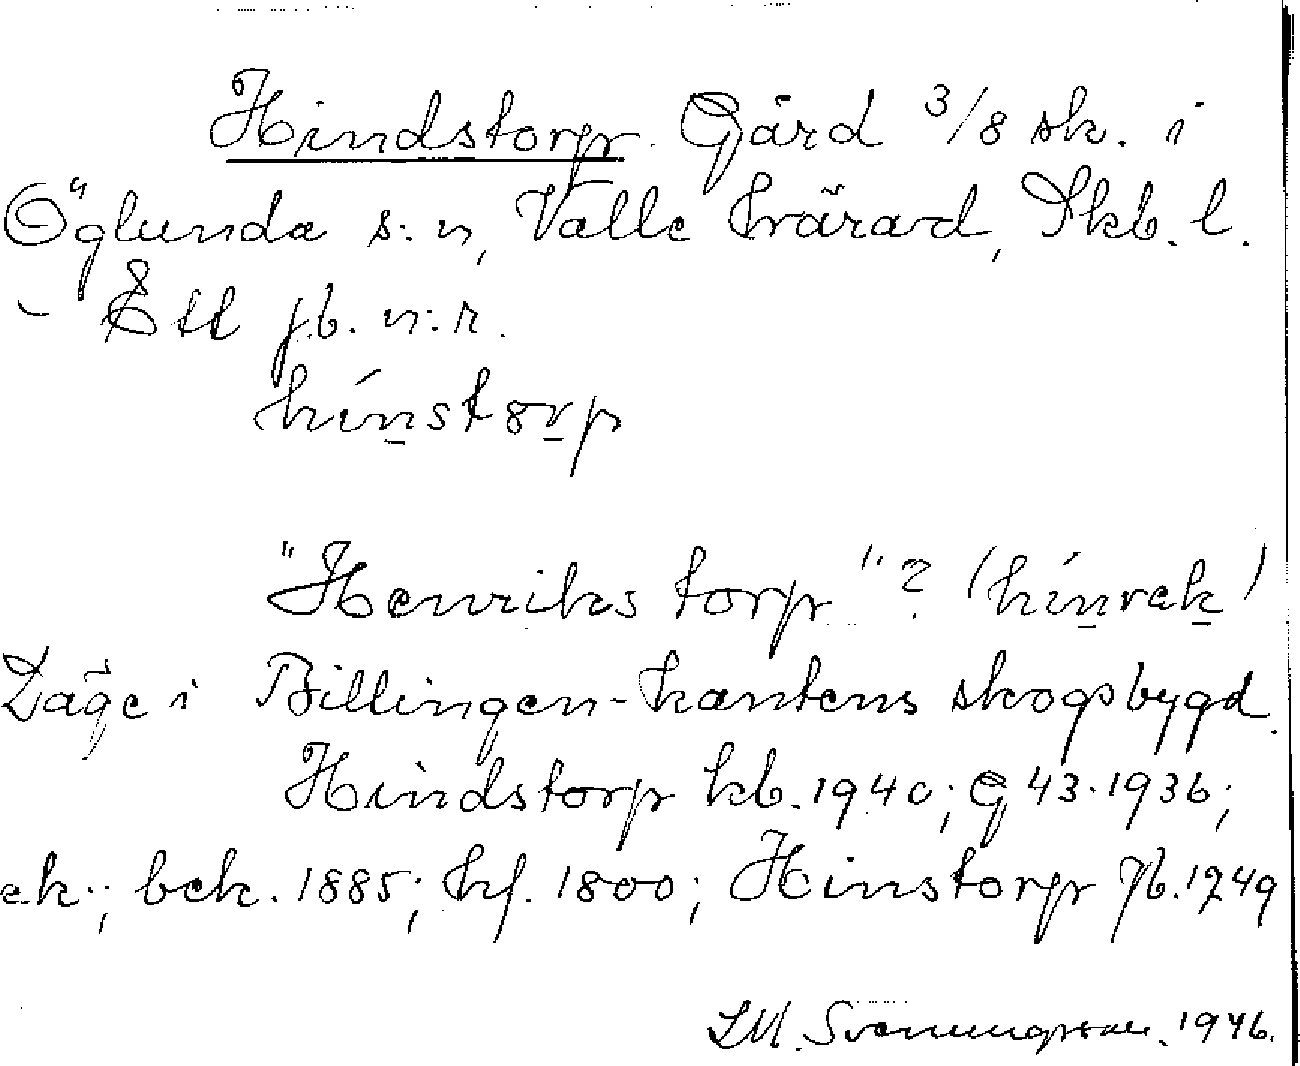 Hindstorp. Gård 3/8 sk. i
Öglunda s:n, Valle härad, Skb. l.
- Ett jb. n:r.
hínstorp
"Henriks torp"? (hínrek)
Läge i Billingen-kantens skogsbygd.
Hindstorp kb. 1940; G 43. 1936;
ek.; bek. 1885; hf. 1800; Hinstorp jb. 1749
LM. Svanungsson. 1946.